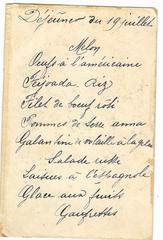 Déjeuner du 19 juillet
Melon
Oeufs à l'américaine
Feijoada. Riz
Filet de boeuf rôti
Pommes de terre anna
Galantine de volaille à la gelée
Salade russe
à l'espagnole
Glace aux fruits
Gaufrettes